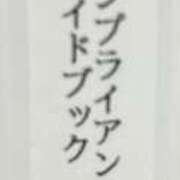 ンプライアン
イドブック